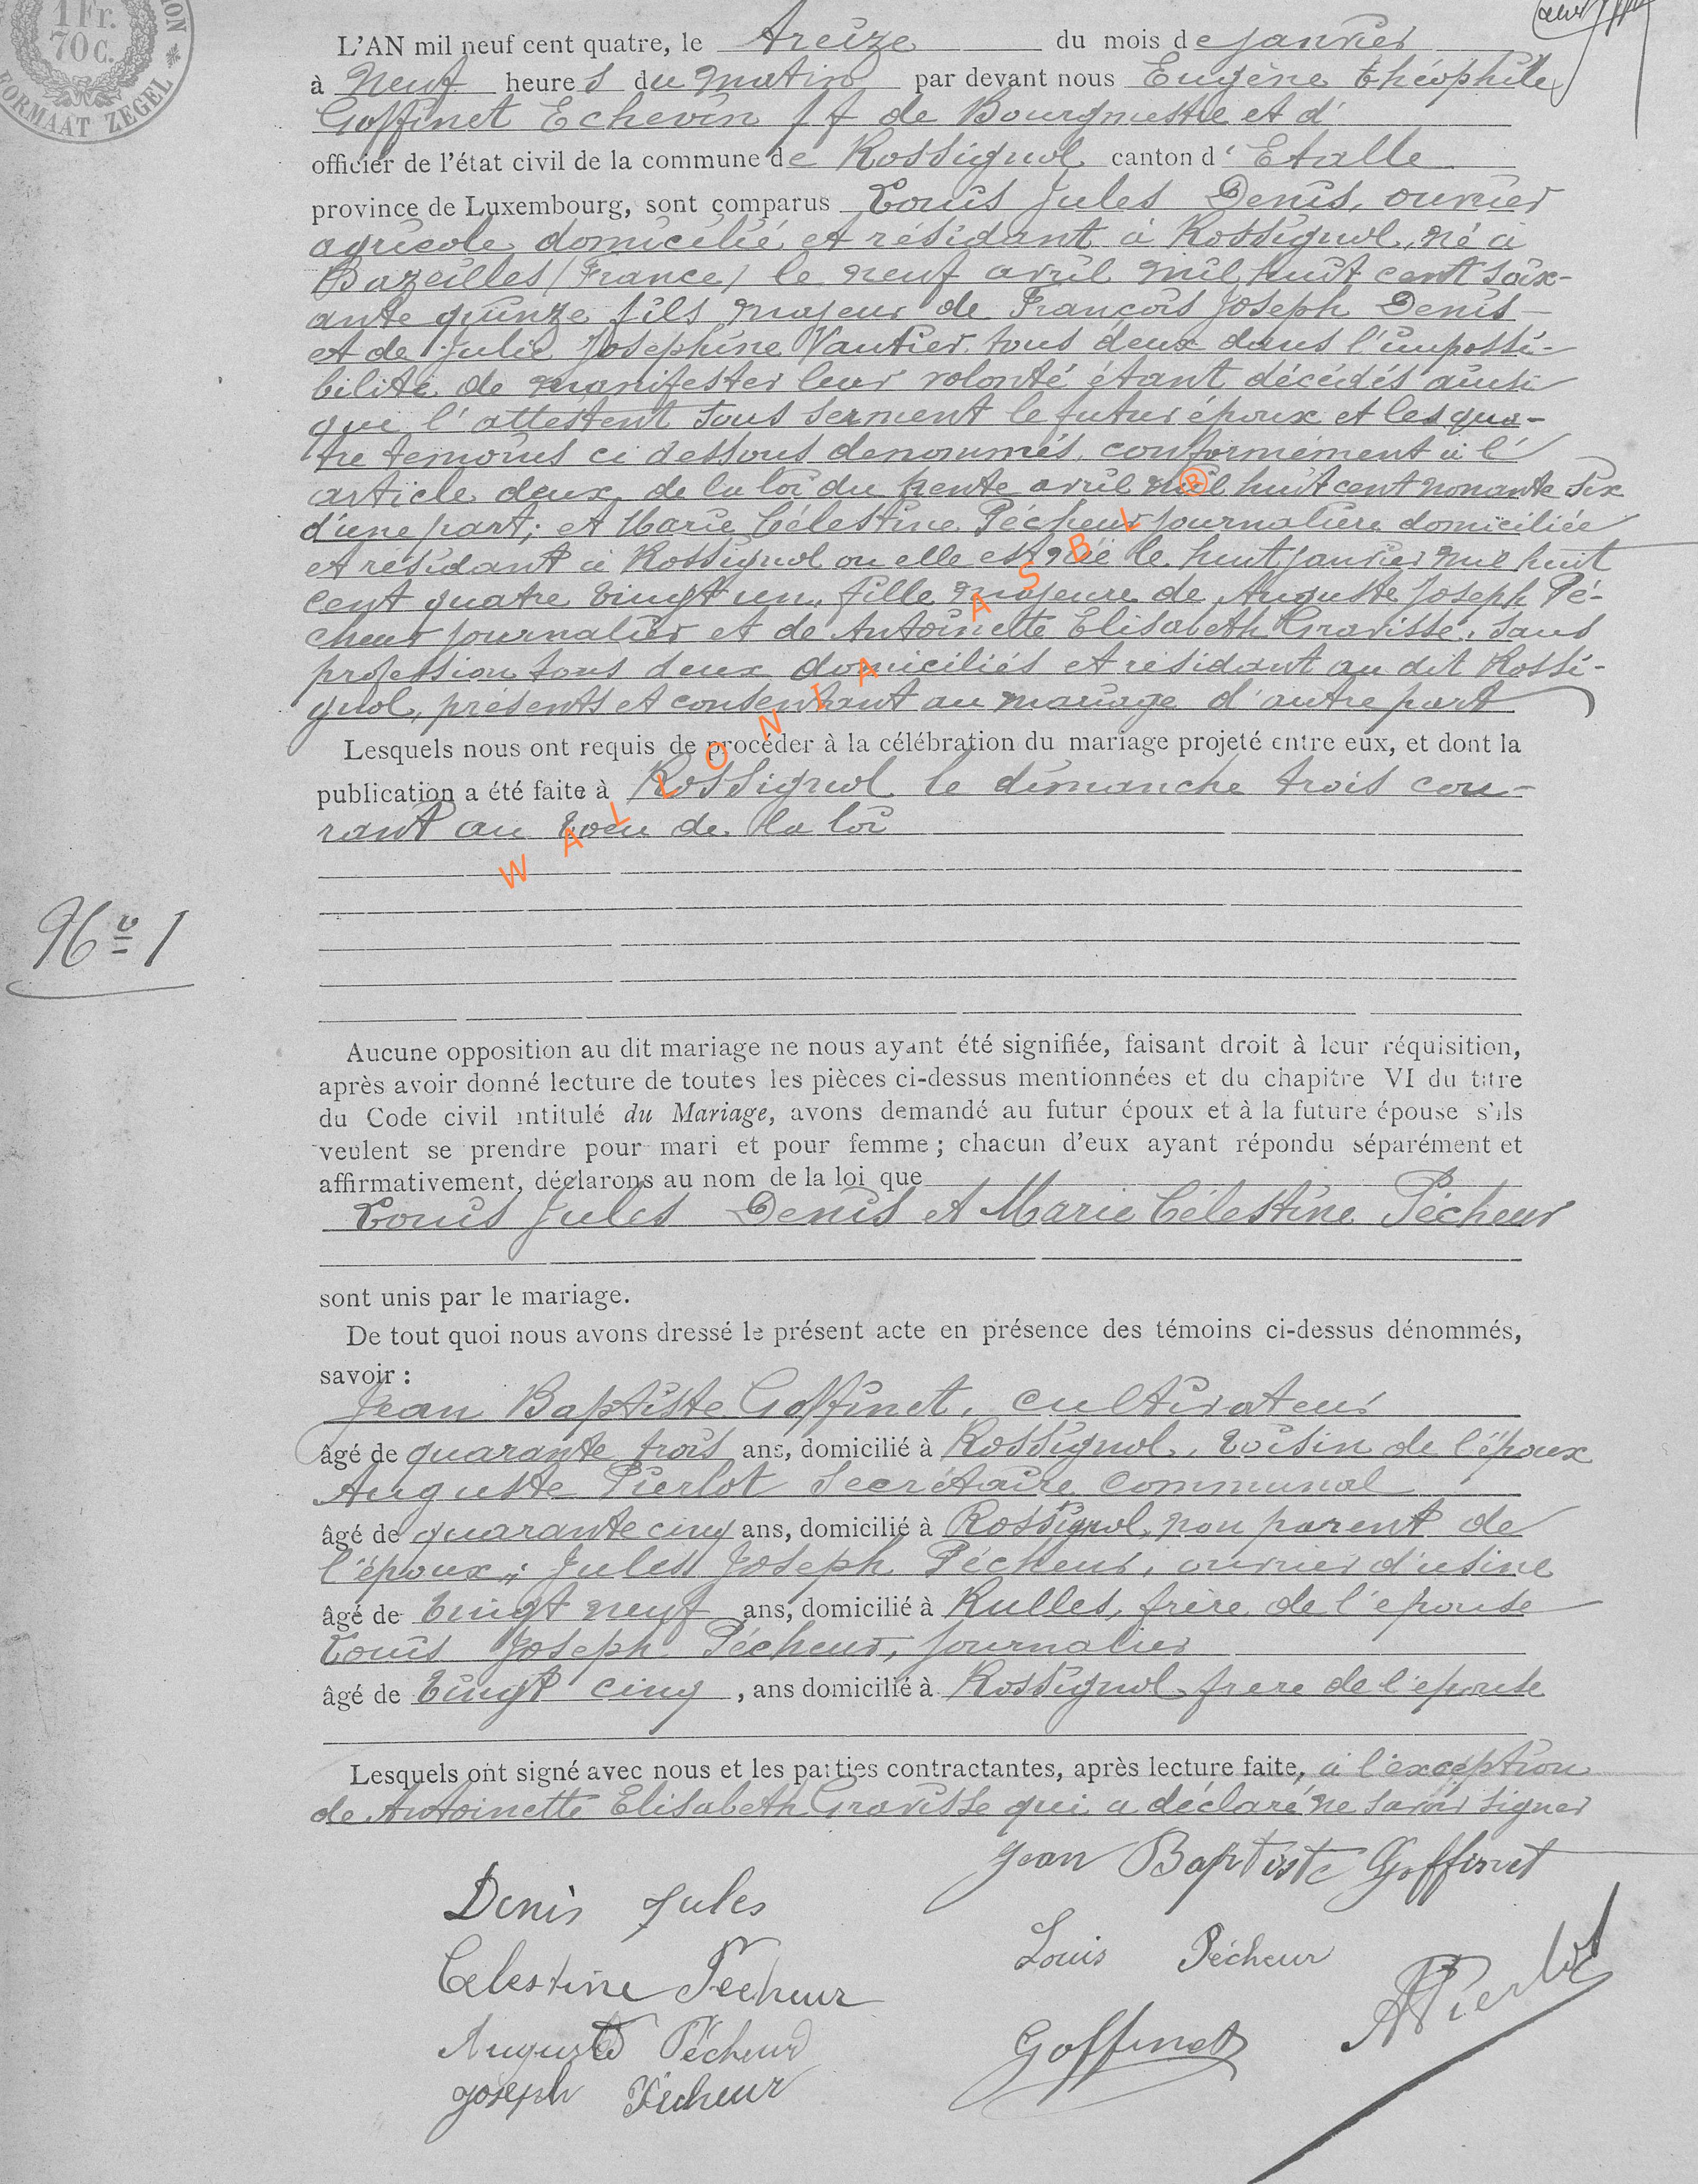 1 Fr.
70 C.
FORMAAT ZEGEL
L'AN mil neuf cent quatre, le treize du mois de janvier
à neuf heures du matin par devant nous Eugène théophile
Goffinet Echevin ff de Bourgmestre et d'
officier de l'état civil de la commune de Rossignol canton d'Etalle
province de Luxembourg, sont comparus Louis Jules Denis, ouvrier
agricole domicilié et résidant à Rossignol, né à
Bazeilles (France) le neuf avril mil huit cent soix-
ante quinze fils majeur de François Joseph Denis
et de Julie Joséphine Vautier tous deux dans l'impossi-
bilité de manifester leur volonté étant décédés ainsi
que l'attestent sous serment le futur époux et les qua-
tre temoins ci dessous denommés, conformément à l'
article deux de la loi du trente avril mil huit cent nonante six
d'une part; et Marie Célestine Pécheur journalière domiciliée
et résidant à Rossignol ou elle est née le huit janvier mil huit
cent quatre vingt un, fille majeure de Auguste Joseph Pé-
cheur journalier et de Antoinette Elisabeth Gravisse, sans
profession tous deux domiciliés et résidant au dit Rossi-
gnol, présents et consentant au mariage d'autre part
Lesquels nous ont requis de procéder à la célébration du mariage projeté entre eux, et dont la
publication a été faite à Rossignol le dimanche trois cou-
rant au voeu de la loi
WALLONIA ASBL ®
No 1
Aucune opposition au dit mariage ne nous ayant été signifiée, faisant droit à leur réquisition,
après avoir donné lecture de toutes les pièces ci-dessus mentionnées et du chapitre VI du titre
du Code civil intitulé du Mariage, avons demandé au futur époux et à la future épouse s'ils
veulent se prendre pour mari et pour femme ; chacun d'eux ayant répondu séparément et
affirmativement, déclarons au nom de la loi que
Louis Jules Denis et Marie Célestine Pécheur
sont unis par le mariage.
De tout quoi nous avons dressé le présent acte en présence des témoins ci-dessus dénommés,
savoir :
Jean Baptiste Goffinet, cultivateur
âgé de quarante trois ans, domicilié à Rossignol, voisin de l'époux
Auguste Pierlot Secrétaire communal
âgé de quarante cinq ans, domicilié à Rossignol, non parent de
l'époux; Jules Joseph Pécheur, ouvrier d'usine
âgé de vingt neuf ans, domicilié à Rulles, frère de l'épouse
Louis Joseph Pécheur, journalier
âgé de vingt cinq , ans domicilié à Rossignol frère de l'épouse
Lesquels ont signé avec nous et les parties contractantes, après lecture faite, à l'exception
de Antoinette Elisabeth Gravisse qui a déclaré ne savoir signer
Jean Baptiste Goffinet
Denis Jules
Louis Pécheur
Celestine Pécheur
APierlot
Auguste Pécheur
Goffinet
Joseph Pécheur